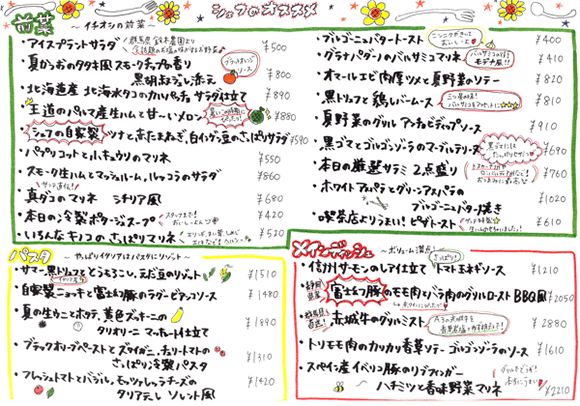 シェフのオススメ
前菜 ～イチオシの前菜～
・アイスプラントサラダ ¥500
・夏かつおのタタキ風 スモークチップの香り
黒胡椒ジュレ添え ¥800
・北海道産 北海水タコのカルパッチョ サラダ仕立て ¥890
・王道のパルマ産生ハムと甘〜いメロン ¥880
・シェフの自家製ツナと赤たまねぎ、白インゲン豆のさっぱりサラダ ¥590
・パプリコットと小キュウリのマリネ ¥550
・スモーク生ハムとマッシュルーム、ルッコラのサラダ ¥860
・真ダコのマリネ シチリア風 ¥680
・本日の冷製ポタージュスープ ¥420
・いろんなキノコのさっぱりマリネ ¥520
・ブルゴーニュバタートースト ¥400
・グラナパダーノのバルサミコマリネ ¥410
・オマールエビ肉厚ツメと夏野菜のソテー ¥820
・黒トリュフと鶏レバームース ¥810
・夏野菜のグリル アンチョビディップソース ¥910
・黒ゴマとゴルゴンゾーラのマーブルテリーヌ ¥680
・本日の厳選サラミ 2点盛り ¥760
・ホワイトアスパラとグリーンアスパラの
ブルゴーニュバター焼き ¥1020
・喫茶店よりうまい!ピザトースト ¥610
パスタ ～やっぱりイタリアはパスタにリゾット～
・サマー黒トリュフととうもろこし、えだ豆のリゾット ¥1510
・自家製ニョッキと富士幻豚のラグービアンコソース ¥1480
・夏の生うにとホタテ、黄色ズッキーニの
タリオリーニ マッケロート仕立て ¥1890
・ブラックオリーブペーストとズワイガニ、チェリートマトの
さっぱり冷製パスタ ¥1310
・フレッシュトマトとバジル、モッツァレラチーズの
タリアテレ ソレント風 ¥1420
メインディッシュ ～ボリューム満点!～
・信州サーモンのレアイ立て トマト玉ネギソース ¥1210
・静岡県産 富士幻豚のモモ肉とバラ肉のグリルロースト BBQ風 ¥2050
・群馬県より直送! 赤城牛のグリルミスト ¥2880
・トリモモ肉のカリカリ香草ソテー ゴルゴンゾーラのソース ¥1610
・スペイン産イベリコ豚のリブフィンガー
ハチミツと香味野菜マリネ ¥2210